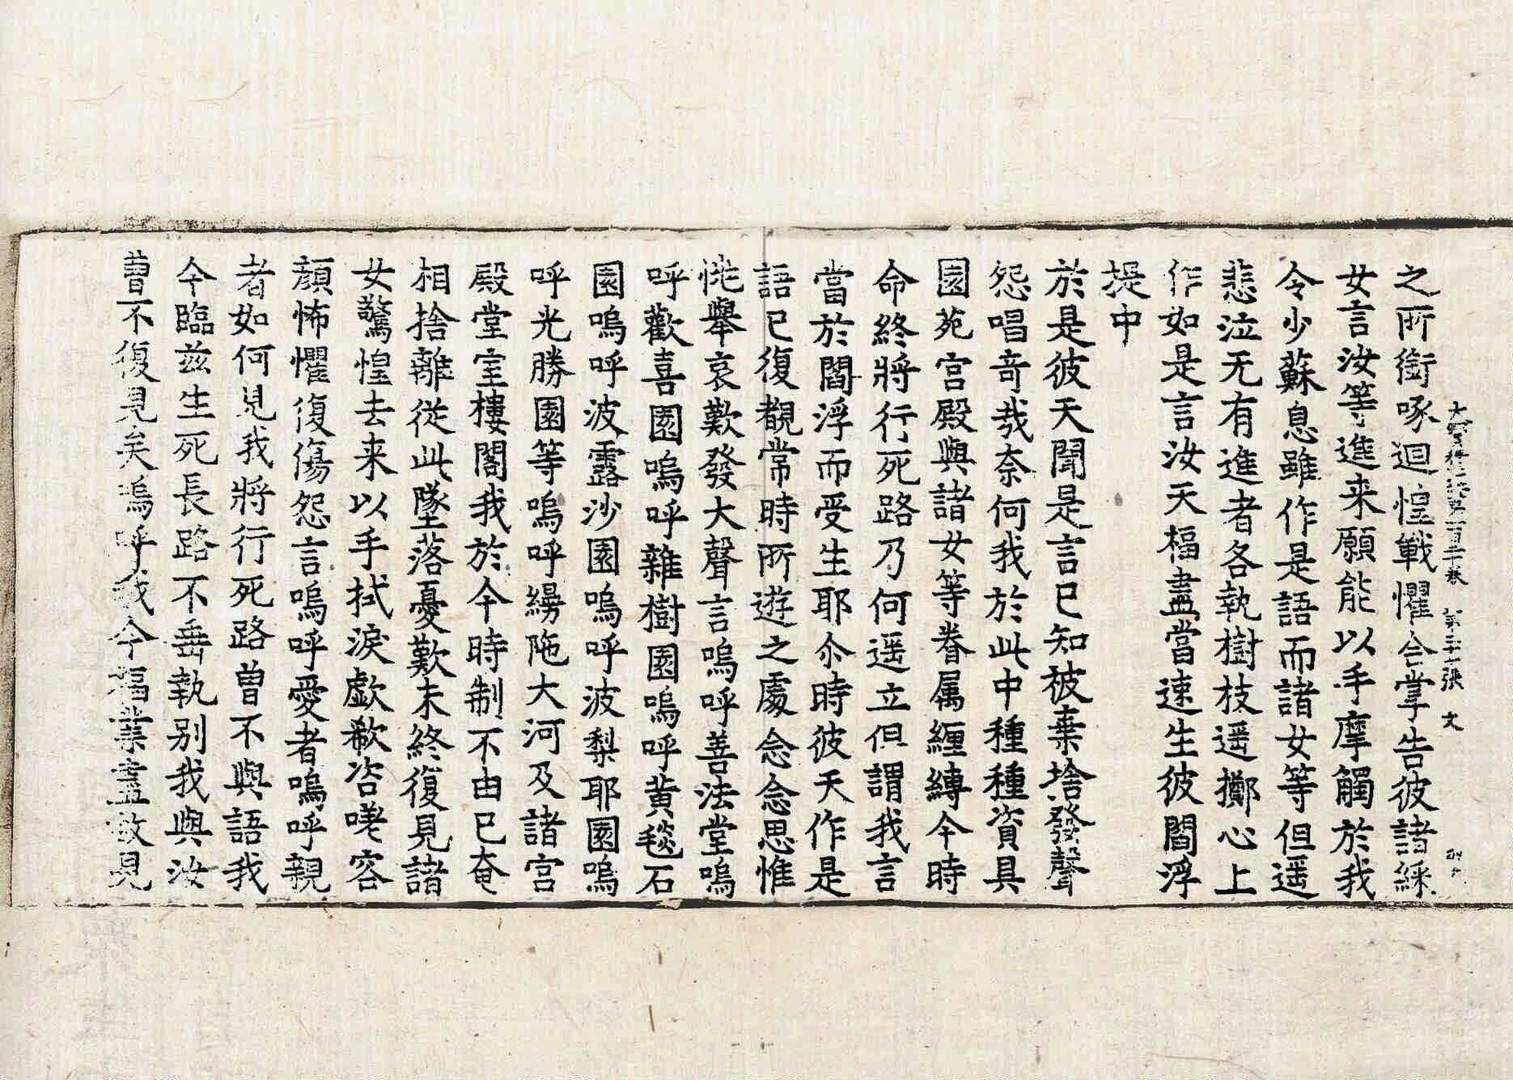 大寶積經第一百二十卷 第二十一張 文
之所銜啄迴惶戰懼合掌告彼諸綵
女言汝等進来願能以手摩觸於我
令少蘇息雖作是語而諸女等但遥
悲泣无有進者各執樹枝遥擲心上
作如是言汝天福盡當速生彼閻浮
提中
於是彼天聞是言已知被棄捨發聲
怨唱竒㢤奈何我於此中種種資具
園苑宫殿與諸女等眷属纒縛今時
命終將行死路乃何遥立但謂我言
當於閻浮而受生耶尒時彼天作是
語已復觀常時所遊之處念念思惟
恍舉哀歎發大聲言嗚呼善法堂嗚
呼歡喜園嗚呼雜樹園嗚呼黄毯石
園嗚呼波露沙園嗚呼波梨耶園嗚
呼光勝園等嗚呼縵陁大河及諸宫
殿堂室樓閣我於今時制不由已奄
相捨離從此墜落憂歎未終復見諸
女驚惶去来以手拭淚歔欷咨嗟容
顔怖懼復傷怨言嗚呼愛者嗚呼親
者如何見我將行死路曽不與語我
今臨兹生死長路不垂執别我與汝
曹不復見矣嗚呼我今福業盡故見